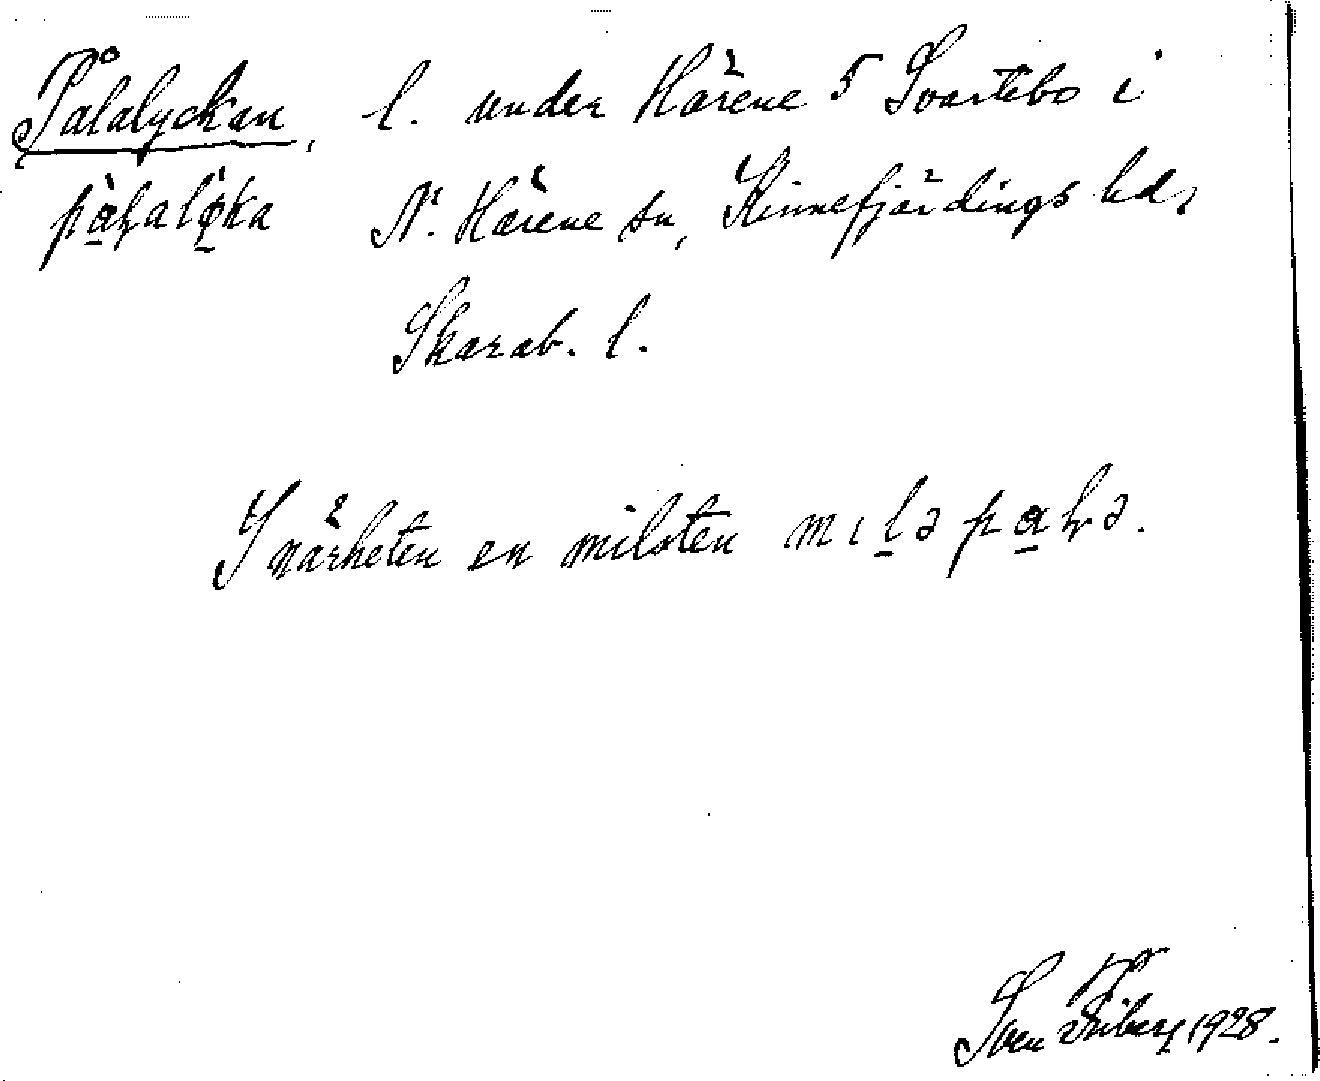 Pålalyckan, l. under Härene 5 Svartebo i
pàɬalø̀ka N. Härene sn, Kinnefjärdings hd,
Skarab. l.
I närheten en milsten mıləpaɬə.
Sven Friberg 1928.